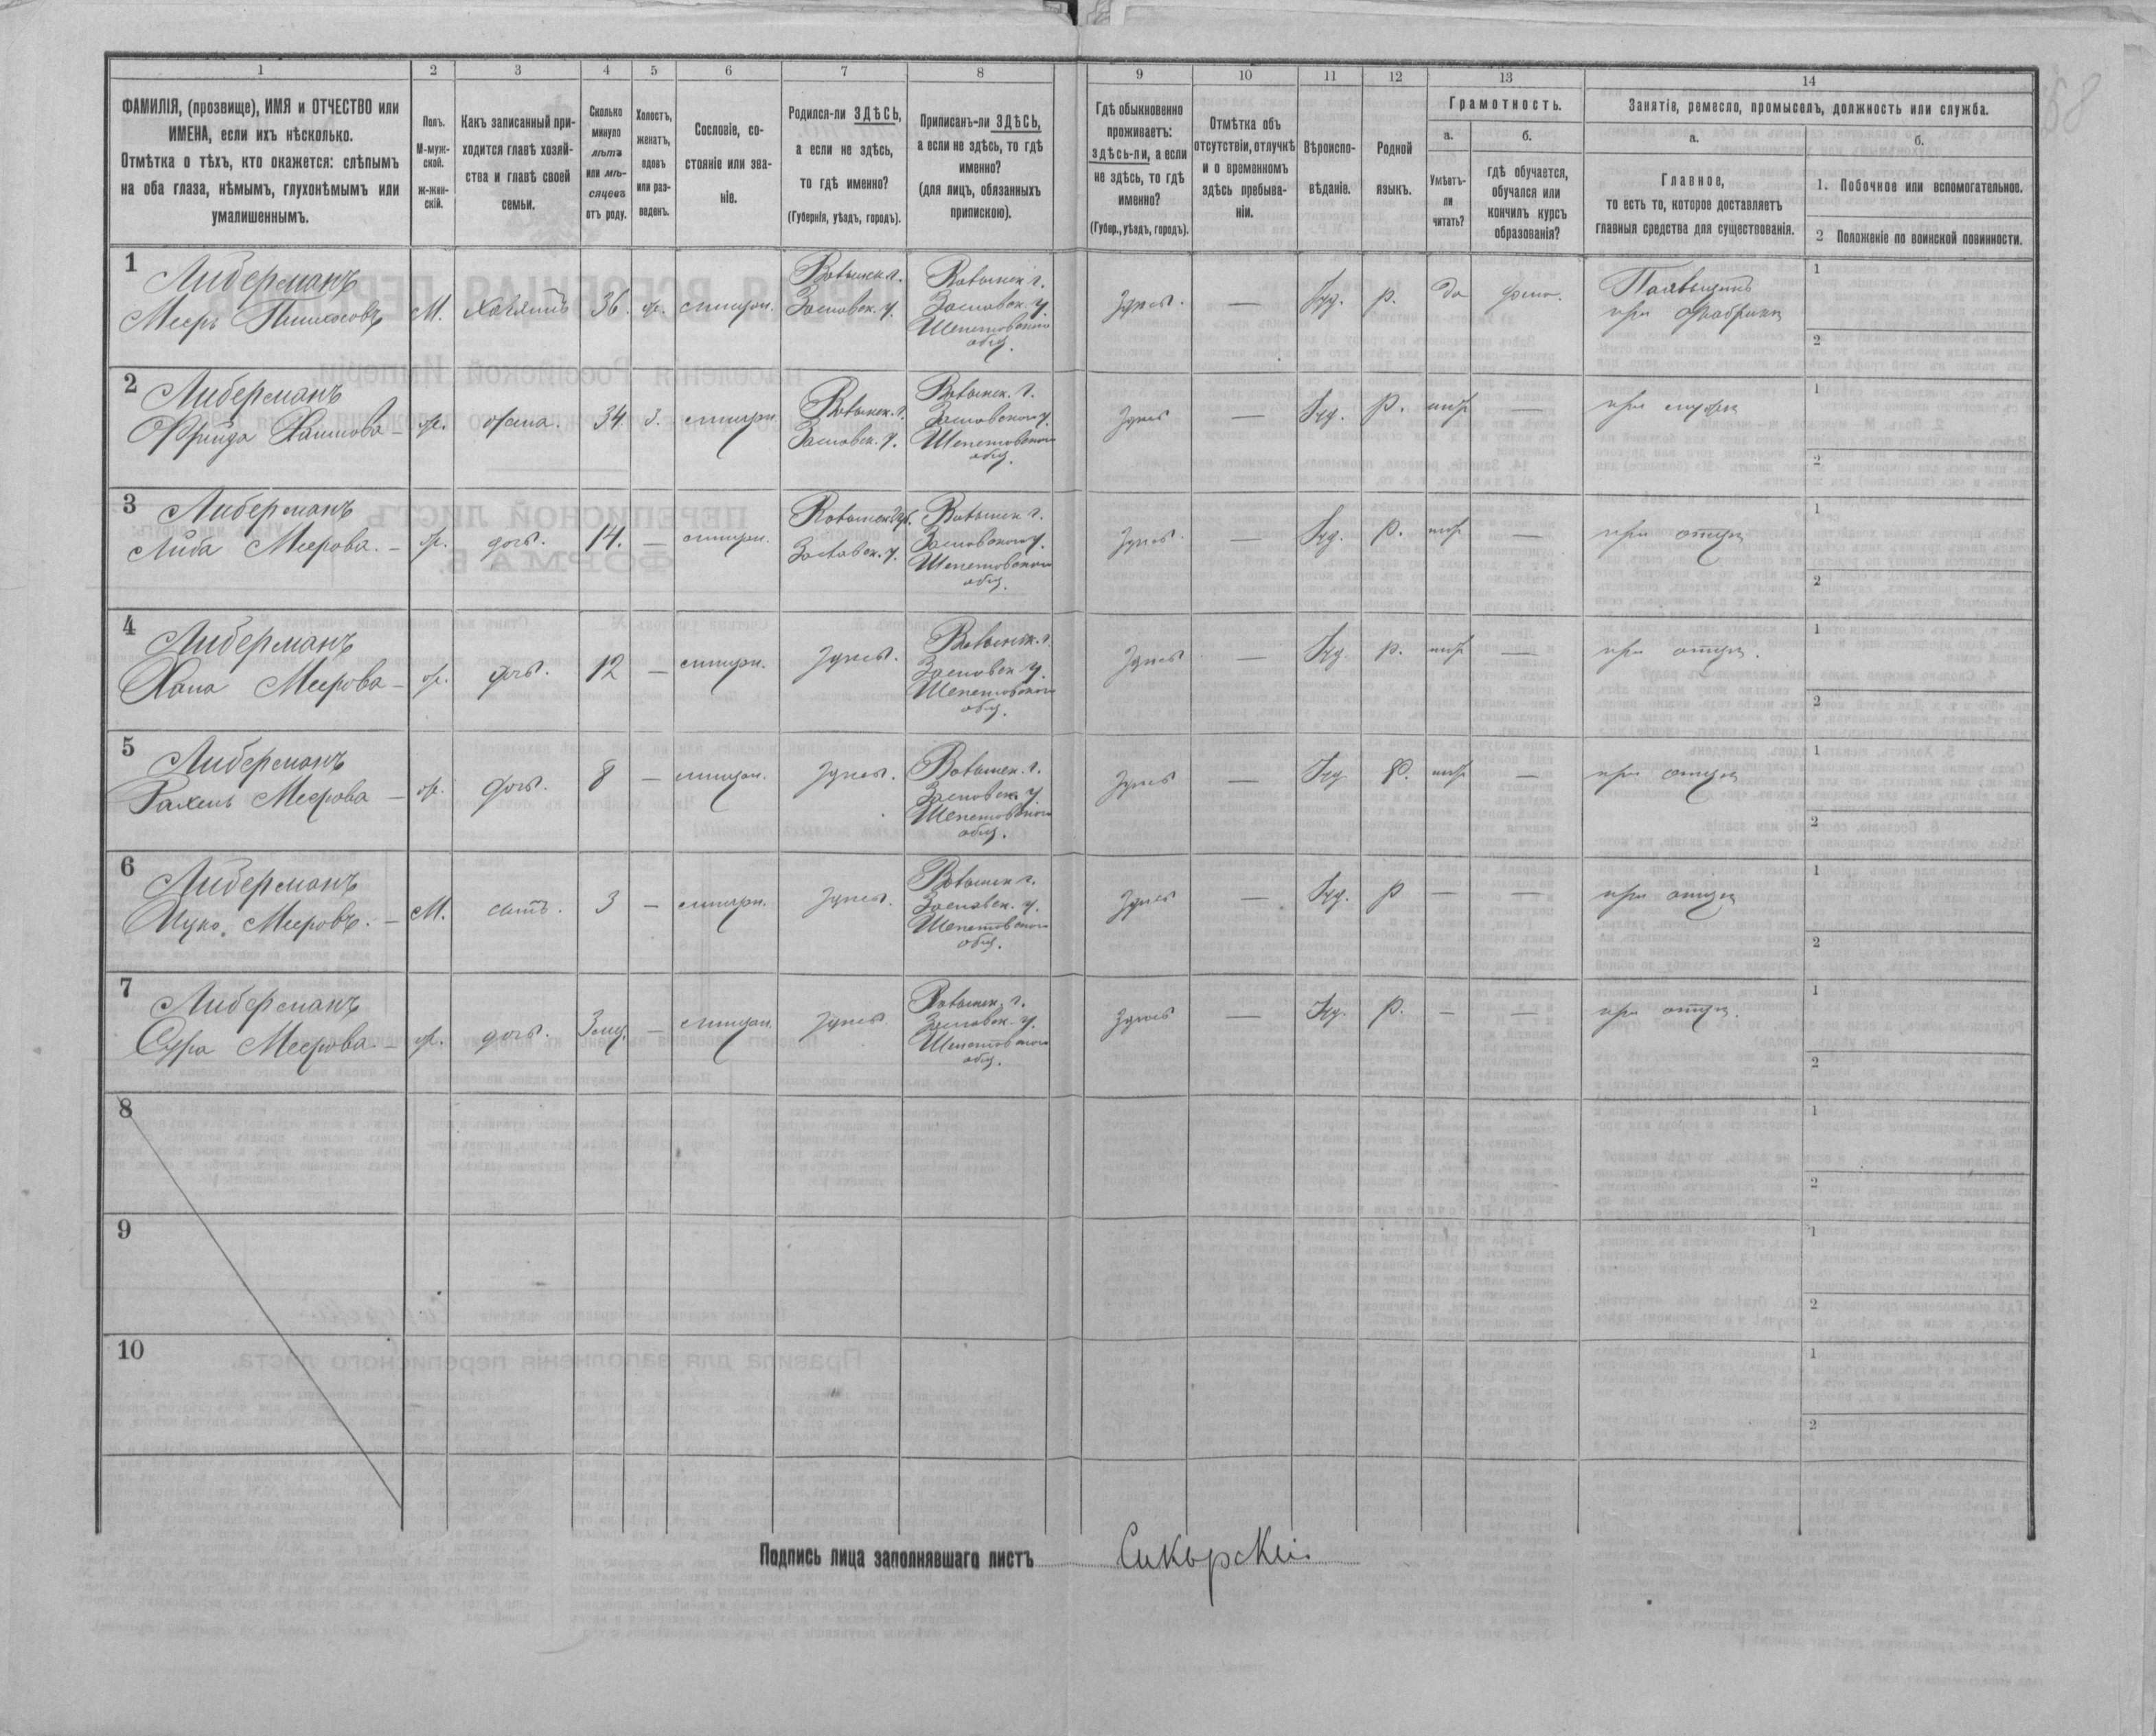 1 2 3 4 5 6 7 8 9 10 11 12 13 14
ФАМИЛІЯ, (прозвище), ИМЯ и ОТЧЕСТВО или
ИМЕНА, если ихъ нѣсколько.
Отмѣтка о тѣхъ, кто окажется: слѣпымъ
на оба глаза, нѣмымъ, глухонѣмымъ или
умалишеннымъ.
Полъ.
М-муж-
ской.
ж-жен-
скій.
Какъ записанный при-
ходится главѣ хозяй-
ства и главѣ своей
семьи.
Сколько
минуло
лѣтъ
или мѣ-
сяцевъ
отъ роду.
Холостъ,
женатъ,
вдовъ
или раз-
веденъ.
Сословіе, со-
стояніе или зва-
ніе.
Родился-ли ЗДѢСЬ,
а если не здѣсь,
то гдѣ именно?
(Губернія, уѣздъ, городъ).
Приписанъ-ли ЗДѢСЬ,
а если не здѣсь, то гдѣ
именно?
(для лицъ, обязанныхъ
припискою).
Гдѣ обыкновенно
проживаетъ:
здѣсь-ли, а если
не здѣсь, то гдѣ
именно?
(Губер., уѣздъ, городъ).
Отмѣтка объ
отсутствіи, отлучкѣ
и о временномъ
здѣсь пребыва-
ніи.
Вѣроиспо-
вѣданіе.
Родной
языкъ.
Грамотность.
а.
Умѣетъ-
ли
читать?
б.
гдѣ обучается,
обучался или
кончилъ курсъ
образованія?
Занятіе, ремесло, промыселъ, должность или служба.
а.
Главное,
то есть то, которое доставляетъ
главныя средства для существованія.
б.
1. Побочное или вспомогательное.
2 Положеніе по воинской повинности.
1
Либерманъ
Мееръ
М. хозяинъ 36.
Волынск. г.
Заславск. у.
Волынск г.
Заславск. у.
Шепетовского
общ.
Здѣсь. — Іуд. р. да
при фабрики
1
2
2
Либерманъ
Фрейда Хаимова
ж. жена. 34 з.
Волынск. г.
Заславск. у.
Волынск. г.
Заславского у.
Шепетовского
общ.
Здѣсь — Іуд. р. нѣт —
при мужѣ
1
2
3
Либерманъ
Либа Меерова. —
ж. дочь. 14. —
Волынск губ.
Заславск. у.
Волынск г.
Заславского у.
Шепетовского
общ.
Здѣсь. — Іуд. р. нѣт —
при отцѣ
1
2
4
Либерманъ
Хана Меерова —
ж. дочь. 12 —
здѣсь.
Волынск. г.
Заславск. у.
Шепетовского
общ.
Здѣсь — Іуд. р. нѣт —
при отцѣ.
1
2
5
Либерманъ
Рахель Меерова —
ж. дочь. 8 —
здѣсь.
Волынск. г.
Заславск. у.
Шепетовского
общ.
Здѣсь — Іуд. р. нѣт —
при отцѣ
1
2
6
Либерманъ
Ицко Мееровъ. —
М. сынъ. 3 —
здѣсь.
Волынск г.
Заславск. у.
Шепетовского
общ.
Здѣсь — Іуд. р — —
при отцѣ
1
2
7
Либерманъ
Сура Меерова. —
ж. дочь. 3 мѣс. —
здѣсь
Волынск. г.
Заславск. у.
Шепетовского
общ.
Здѣсь — Іуд. р. — —
при отцѣ.
1
2
8
1
2
9
1
2
10
1
2
Подпись лица заполнявшаго листъ Сикорскій